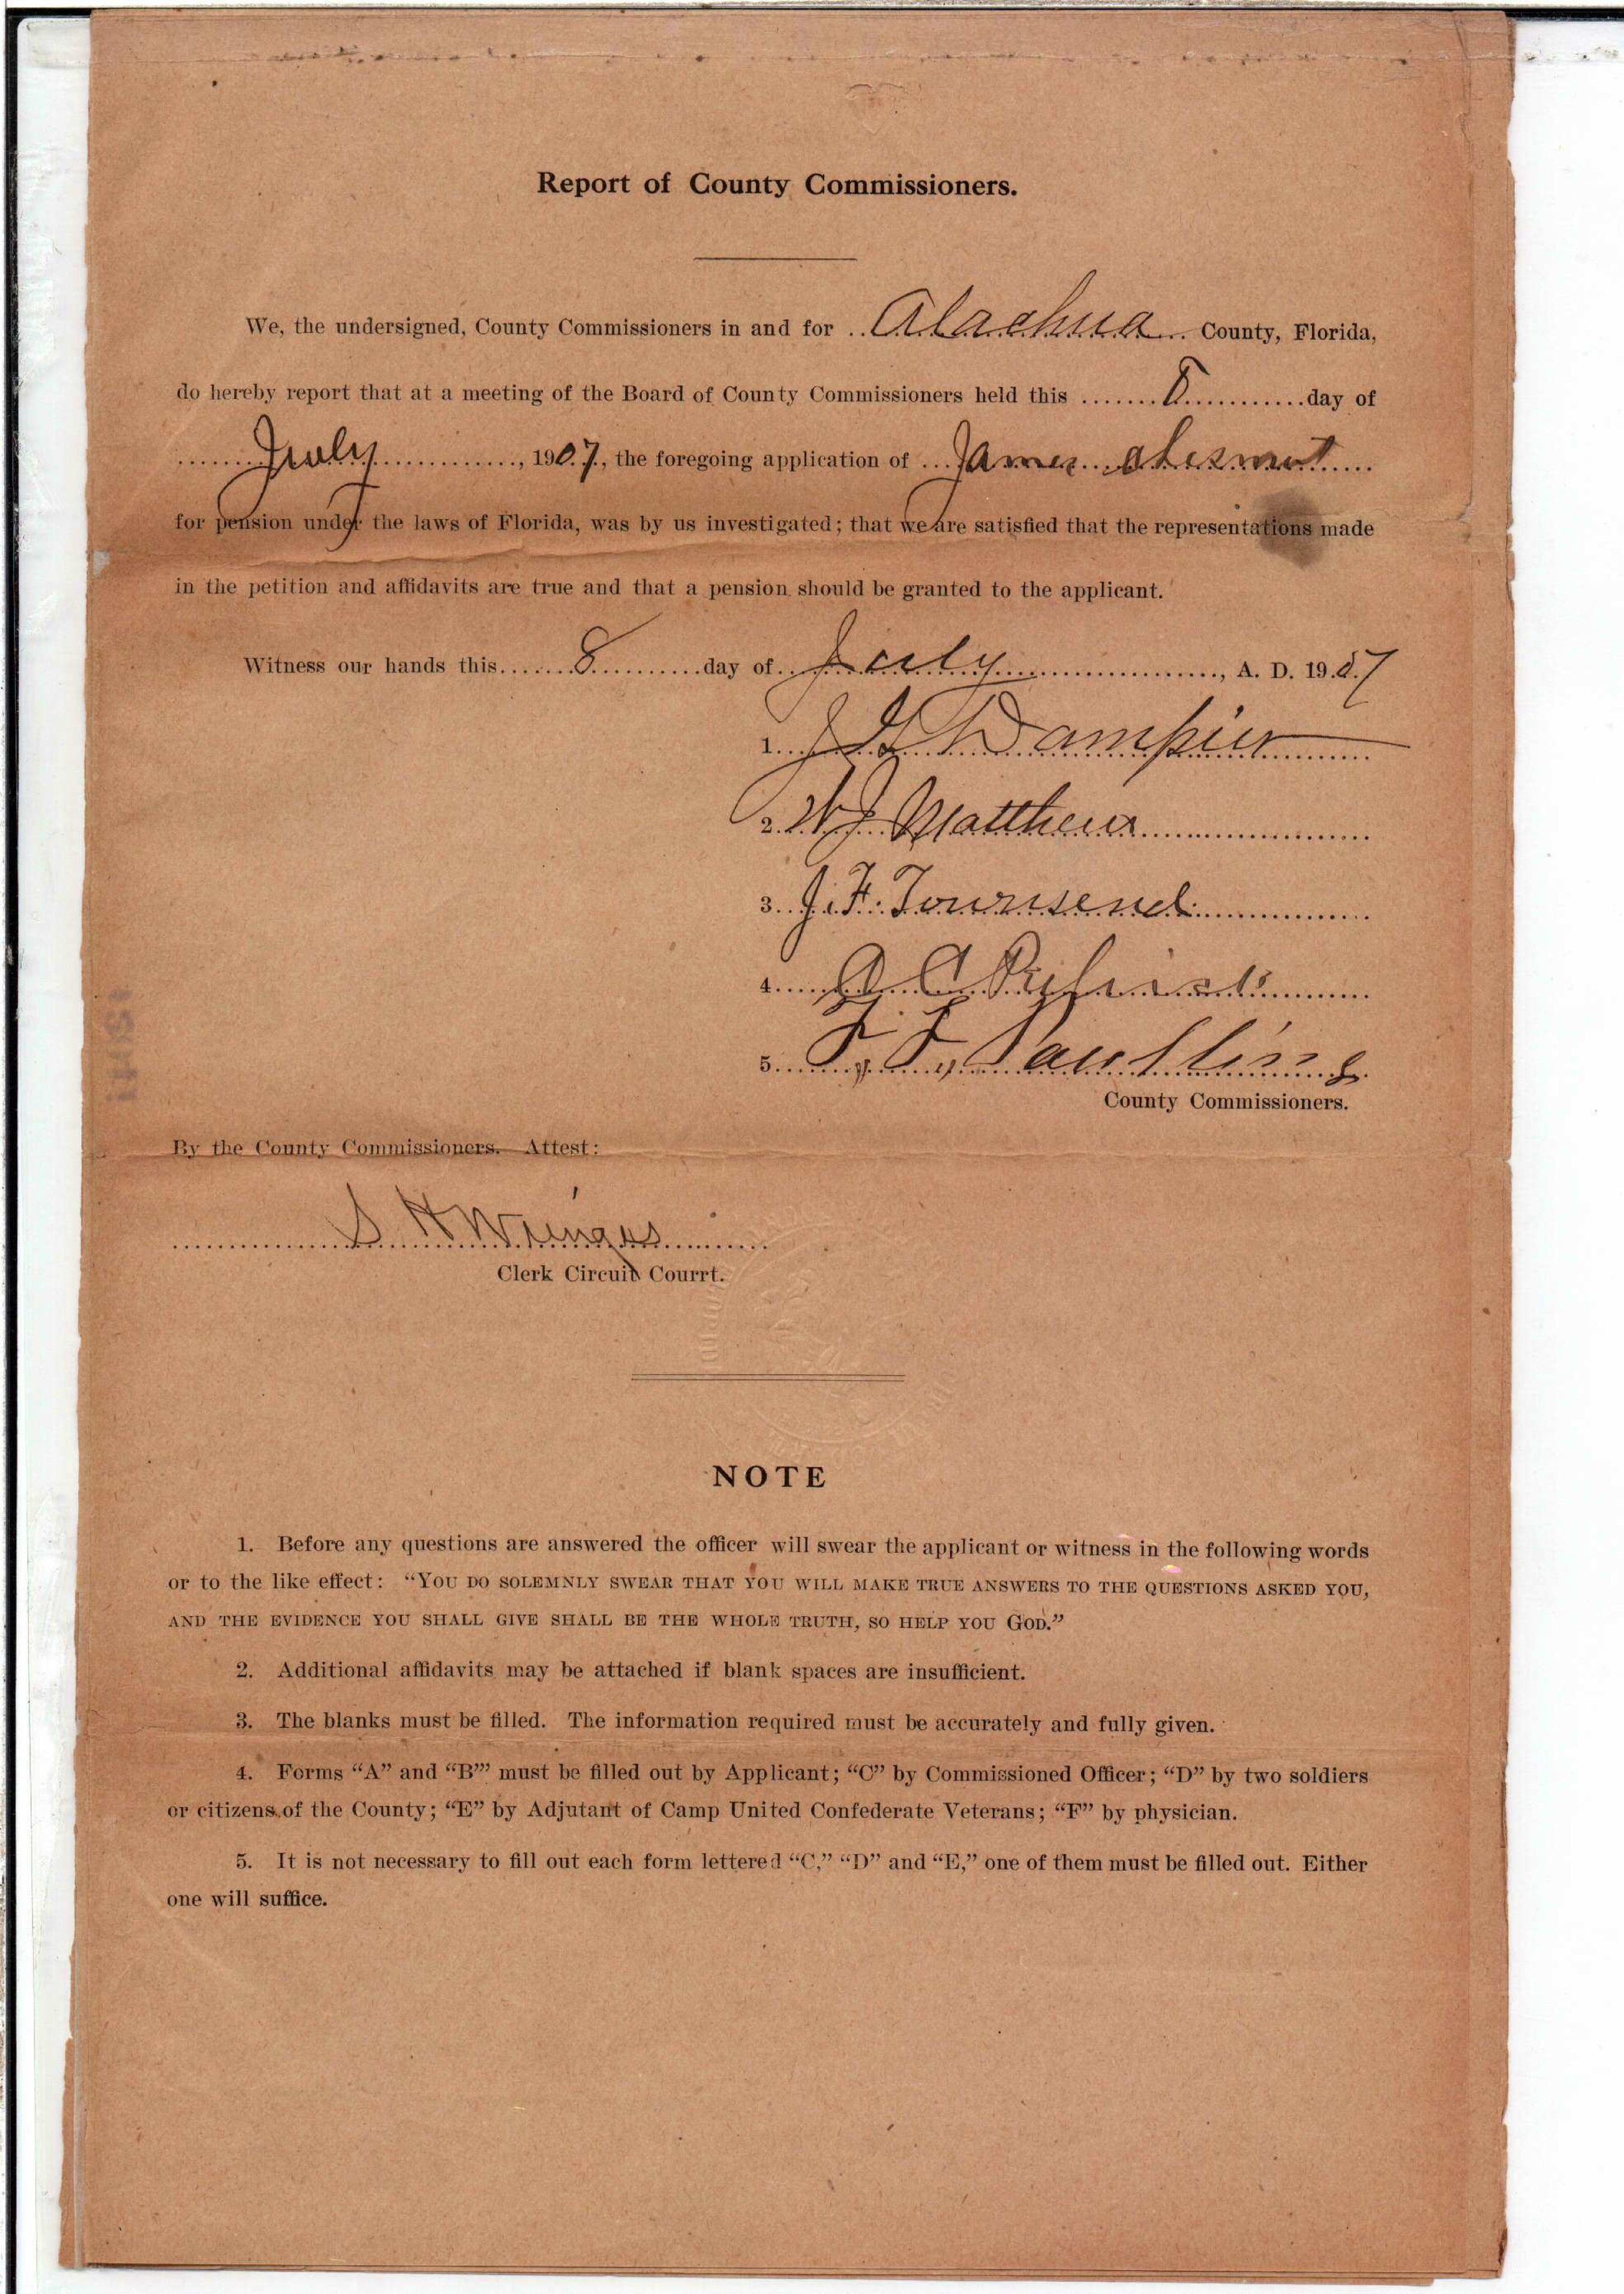 Report of County Commissioners.
We, the undersigned, County Commissioners in and for Alachua County, Florida,
do hereby report that at a meeting of the Board of County Commissioners held this 8 day of
July, 1907, the foregoing application of James
for pension under the laws of Florida, was by us investigated; that we are satisfied that the representations made
in the petition and affidavits are true and that a pension should be granted to the applicant.
Witness our hands this 8 day of July, A. D. 1907
1. J G Dampier
2. W J Matthews
3. J. F. Townsend
4.
5. F. F. Paulling
County Commissioners.
By the County Commissioners. Attest:
S H Wienges
Clerk Circuit Courrt.
NOTE
1. Before any questions are answered the officer will swear the applicant or witness in the following words
or to the like effect: “YOU DO SOLEMNLY SWEAR THAT YOU WILL MAKE TRUE ANSWERS TO THE QUESTIONS ASKED YOU,
AND THE EVIDENCE YOU SHALL GIVE SHALL BE THE WHOLE TRUTH, SO HELP YOU GOD.”
2. Additional affidavits may be attached if blank spaces are insufficient.
3. The blanks must be filled. The information required must be accurately and fully given.
4. Forms “A” and “B”’ must be filled out by Applicant; “C” by Commissioned Officer; “D” by two soldiers
or citizens of the County; “E” by Adjutant of Camp United Confederate Veterans; “F” by physician.
5. It is not necessary to fill out each form lettered “C,” “D” and “E,” one of them must be filled out. Either
one will suffice.